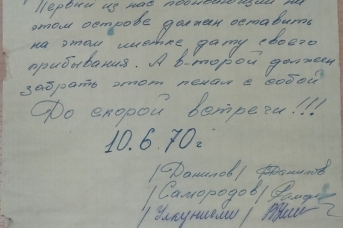 "Первый из нас побывающий на
этом острове должен оставить
на этом листке дату своего
прибывания. А в-торой должен
забрать этот пенал с собой
До скорой встречи!!!
10.6.70 г
/Данилов/ Данилов
/Самородов/